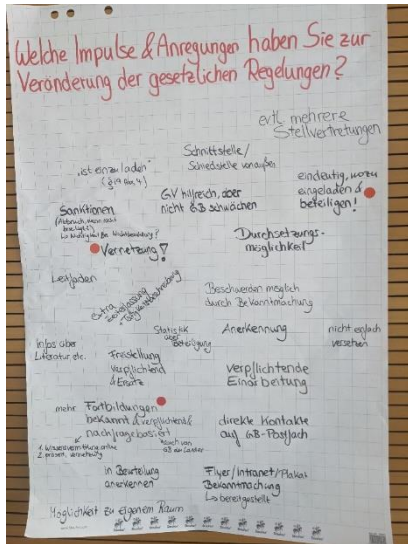 Welche Impulse & Anregungen haben Sie zur
Veränderung der gesetzlichen Regelungen?
evtl. mehrere
Stellvertretungen
Schnittstelle/
Schiedstelle von außen
"ist einzuladen"
eindeutig, wozu
eingeladen &
beteiligen!
GV hilfreich, aber
nicht GB schwächen
Sanktionen
Vernetzung!
Durchsetzungs-
möglichkeit
Leitfaden
extra
Beschwerden möglich
durch Bekanntmachung
Statistik
über
Beteiligung
Anerkennung
nicht einfach
versetzen
Infos über
Literatur etc.
Freistellung
verpflichtend
& Ersatz
verpflichtende
Einarbeitung
mehr Fortbildungen
bekannt & verpflichtend &
nachfragebasiert
direkte Kontakte
auf GB-Postfach
in Beurteilung
anerkennen
Flyer/Intranet/Plakat
Bekanntmachung
↳ bereitgestellt
Möglichkeit zu eigenem Raum